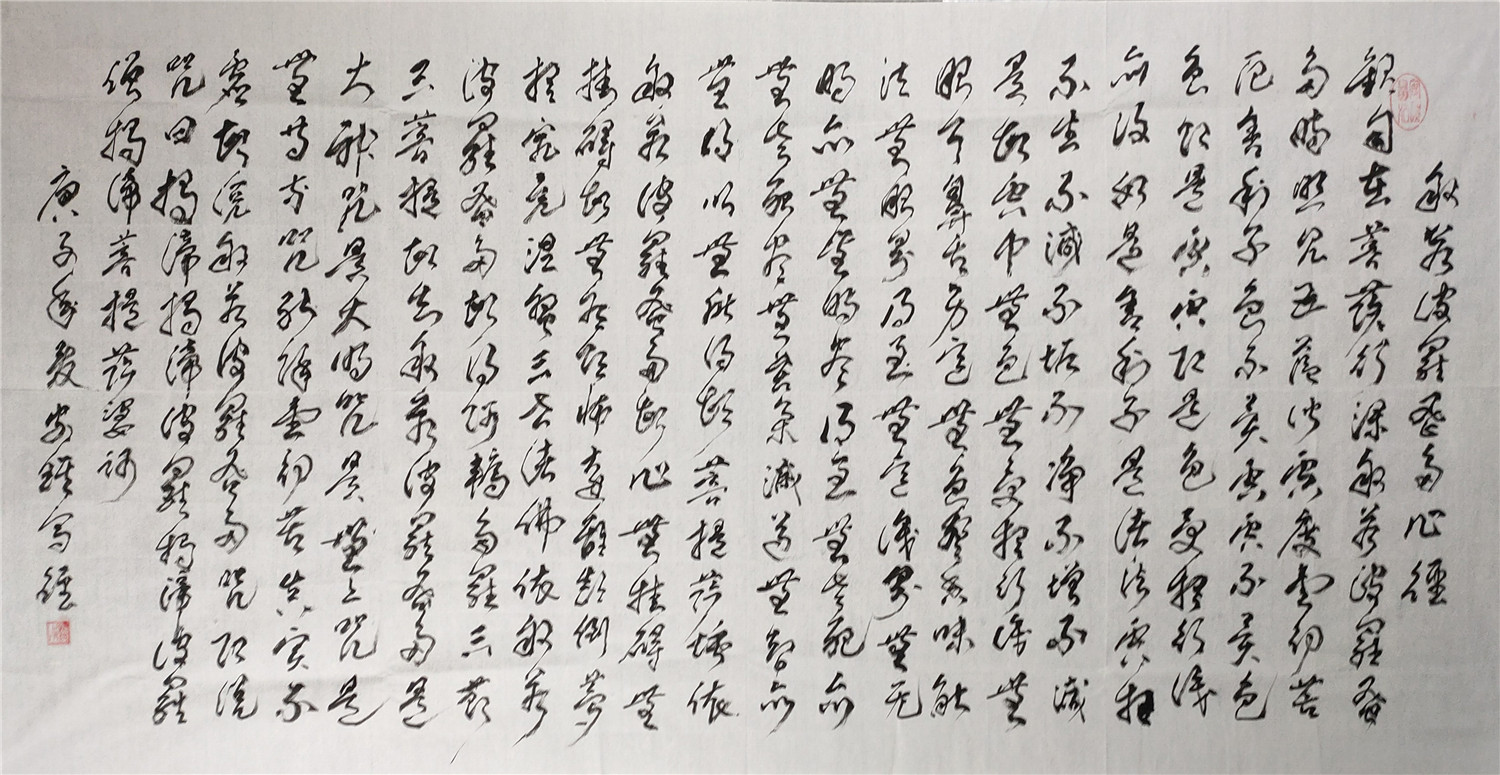 般若波羅蜜多心經
觀自在菩薩行深般若波羅蜜
多時照見五蘊皆空度一切苦
厄舍利子色不異空空不異色
色即是空空即是色受想行識
亦復如是舍利子是諸法空相
不生不滅不垢不淨不增不減
是故空中無色無受想行識無
眼耳鼻舌身意無色聲香味觸
法無眼界乃至無意識界無無
明亦無無明盡乃至無老死亦
無老死盡無苦集滅道無智亦
無得以無所得故菩提薩埵依
般若波羅蜜多故心無挂礙無
挂礙故無有恐怖遠離顛倒夢
想究竟涅槃三世諸佛依般若
波羅蜜多故得阿耨多羅三藐
三菩提故知般若波羅蜜多是
大神咒是大明咒是無上咒是
無等等咒能除一切苦真實不
虛故說般若波羅蜜多咒即說
咒曰揭諦揭諦波羅揭諦波羅
僧揭諦菩提薩婆訶
庚子年寫經